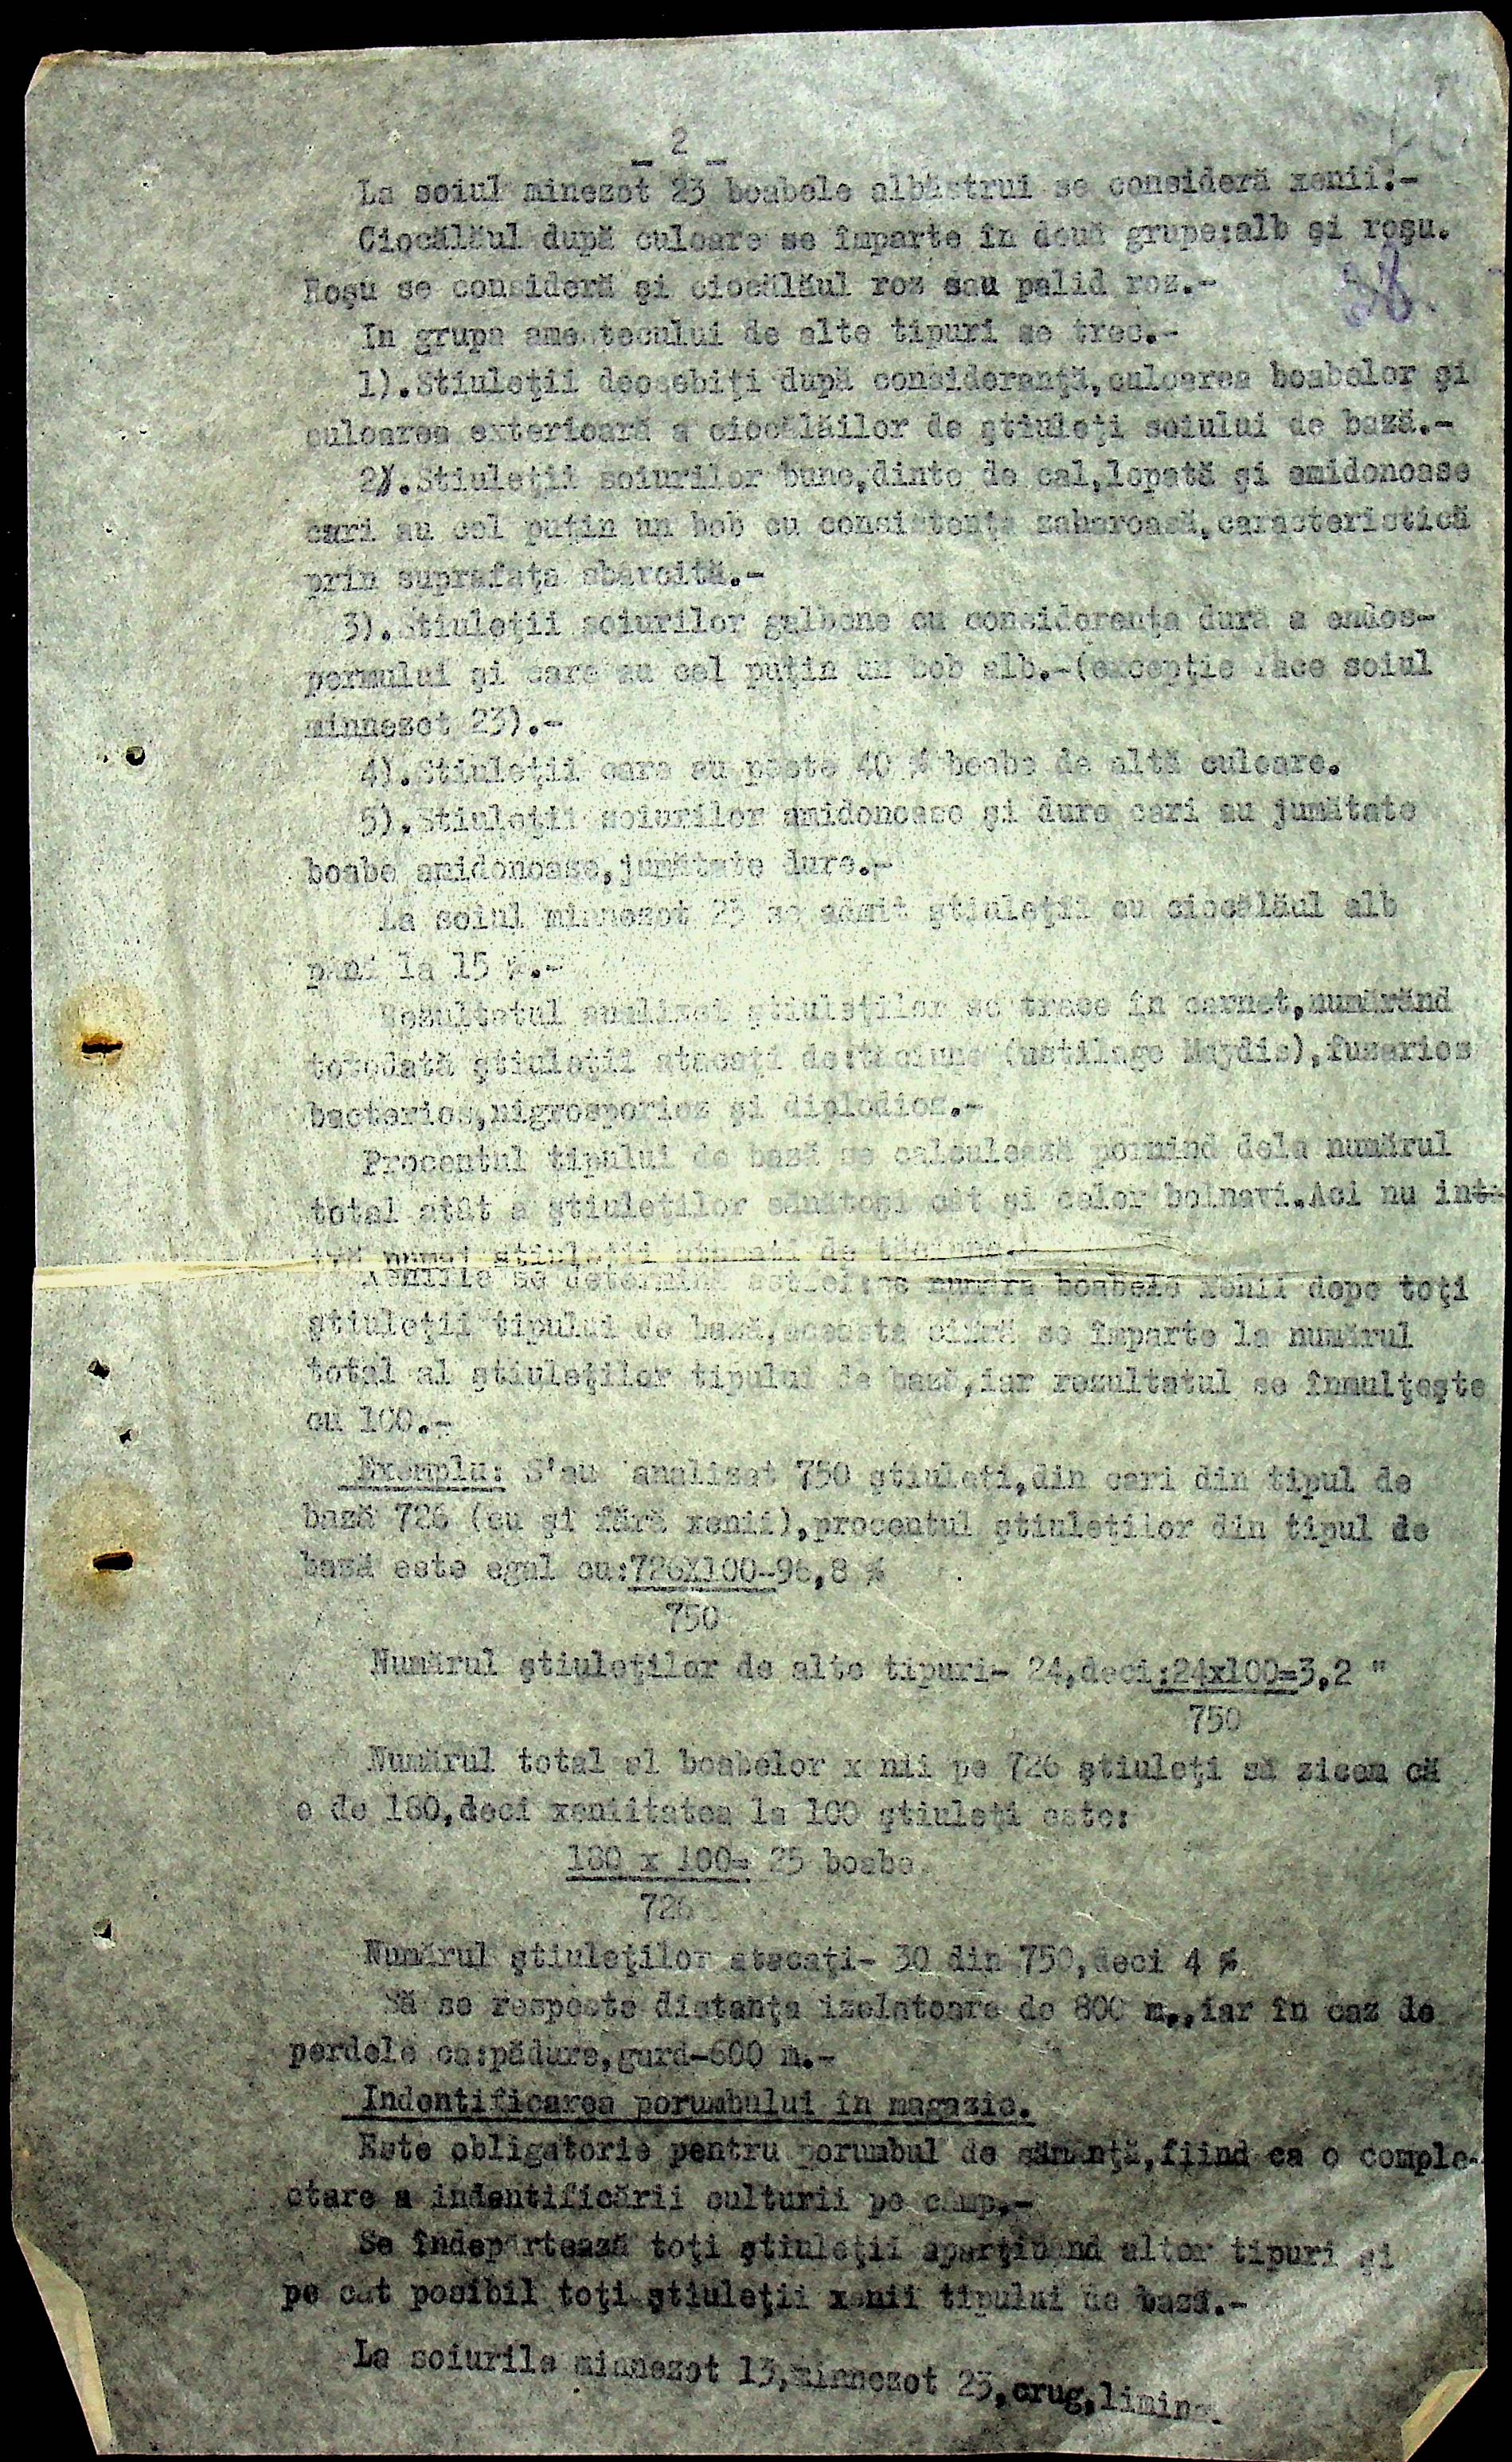 - 2 -
La soiul minezot 23 boabele albăstrui se consideră xenii:-
Ciocălăul după culoare se împarte în două grupe:alb şi roşu.
Roşu se consideră şi ciocălăul roz sau palid roz.-
38.
In grupa amestecului de alte tipuri se trec.-
1).Stiuleţii deosebiţi după consideranţă,culoarea boabelor şi
culoarea exterioară a ciocălăilor de ştiuleţi soiului de bază.-
2).Stiuleţii soiurilor bune,dinte de cal,lopată şi amidonoase
cari au cel puţin un bob cu consistenţa zaharoasă,caracteristică
prin suprafaţa sbârcită.-
3).Stiuleţii soiurilor galbene cu considerenţa dură a endos-
permului şi care au cel puţin un bob alb.-(excepţie face soiul
minnezot 23).-
4).Stiuleţii care au peste 40 % boabe de altă culoare.
5).Stiuleţii soiurilor amidonoase şi dure cari au jumătate
boabe amidonoase,jumătate dure.-
La soiul minnezot 23 se admit ştiuleţii cu ciocălăul alb
până la 15 %.-
Rezultatul analizei ştiuleţilor se trece în carnet,numărând
totodată ştiuleţii atacaţi de:tăciune (ustilago Maydis),fusarios
bacterios,nigrosporioz şi diplodioz.-
Procentul tipului de bază se calculează pornind dela numărul
total atât a ştiuleţilor sănătoşi cât şi celor bolnavi.Aci nu int
ră numai ştiuleţii atacaţi de tăciune.
Xeniile se determină astfel:se număra boabele xenii depe toţi
ştiuleţii tipului de bază,aceasta cifră se împarte la numărul
total al ştiuleţilor tipului de bază,iar rezultatul se înmulţeşte
cu 100.-
Exemplu: S'au analizat 750 ştiuleţi,din cari din tipul de
bază 726 (cu şi fără xenii),procentul ştiuleţilor din tipul de
bază este egal cu:726X100-96,8 %
750
Numărul ştiuleţilor de alte tipuri- 24,deci:24x100=3,2 "
750
Numărul total al boabelor xenii pe 726 ştiuleţi să zicem că
e de 180,deci xeniitatea la 100 ştiuleţi este:
180 x 100= 25 boabe.
726
Numărul ştiuleţilor atacaţi- 30 din 750,deci 4 %
Să se respecte distanţa izolatoare de 800 m.,iar în caz de
perdele ca:pădure,gard-600 m.-
Indentificarea porumbului în magazie.
Este obligatorie pentru porumbul de sămânţă,fiind ca o comple-
ctare a indentificării culturii pe câmp.-
Se îndepărtează toţi ştiuleţii aparţinând altor tipuri şi
pe cât posibil toţi ştiuleţii xenii tipului de bază.-
La soiurile minnezot 13,minnezot 23,crug,liming.